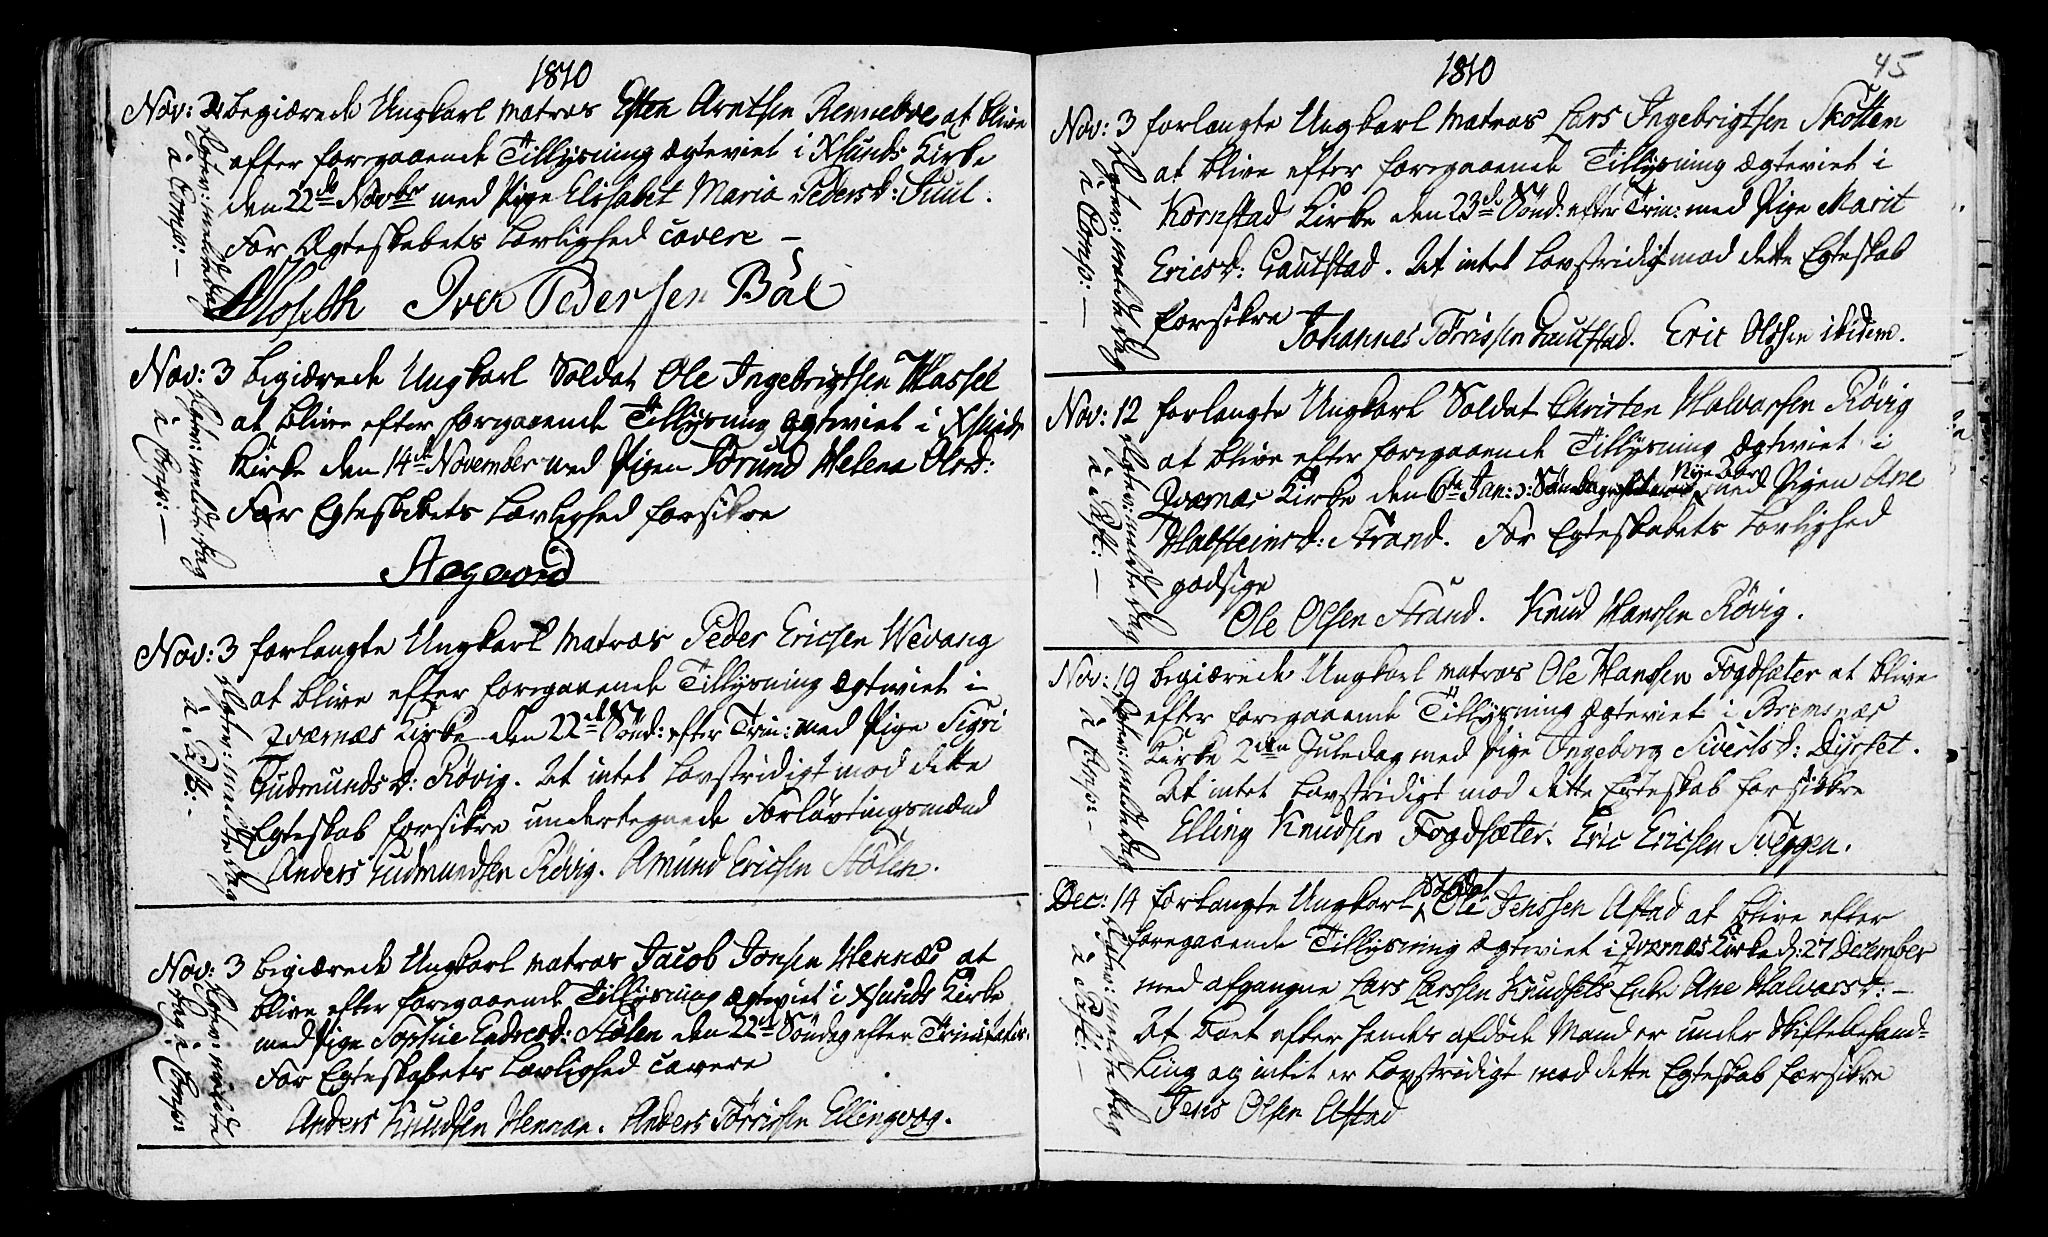 1810
Nov: 2 begiærede Ungkarl Matros Esten Arntsen Renneboe at blive
efter foregaaende Tillysning ægteviet i Xsunds Kirke
den 22de Novbr med Pige Elisabet Maria Pedersd: Juul.
For Ægteskabets Lovlighed cavere –
Iver Pedersen Böe
Nov: 3 begiærede Ungkarl Soldat Ole Ingebrigtsen Hassel
at blive efter foregaaende Tillysning ægteviet i Xsunds
Kirke den 14de November med Pigen Jørund Helena Olsd:
For Egteskabets Lovlighed forsikre
Aagaard
Nov: 3 forlangte Ungkarl Matros Peder Ericsen Wevang
at blive efter foregaaende Tillysning ægteviet i
Qværnæs Kirke den 22de Sönd: efter Trin: med Pige Sigri
Gudmundsd: Røvig. At intet Lovstridigt mod dette
Egteskab forsikre undertegnede Forlovningsmænd
Anders Gudmundsen Røvig. Amund Ericsen Stölen.
Nov: 3 begiærede Ungkarl Matros Jacob Jonsen Hennæs at
blive efter foregaaende Tillysning ægteviet i Xsunds Kirke
med Pige Sophie Endresd: Stölen den 22de Söndag efter Trinitatis.
For Egteskabets Lovlighed cavere
Anders Knudsen Hennæs. Anders Törrisen Ellingvog.
1810
45
Nov: 3 forlangte Ungkarl Matros Lars Ingebrigtsen Skotten
at blive efter foregaaende Tillysning ægteviet i
Kornstad Kirke den 23de Sönd: efter Trin: med Pige Marit
Ericsd: Gautstad. At intet Lovstridigt mod dette Egteskab
forsikre Johannes Törrissen Gautstad. Eric Olssen ibidem.
Nov: 12 forlangte Ungkarl Soldat Christen Halvorssen Røvig
at blive efter foregaaende Tillysning ægteviet i
Qværnæs Kirke den 6te Jan: Nyeaar med Pigen Ane
Halsteinsd: Strand. For Egteskabets Lovlighed
godsige
Ole Olsen Strand. Knud Hanssen Røvig.
Nov: 19 begiærede Ungkarl Matros Ole Hanssen Fogdsæter at blive
efter foregaaende Tillysning ægteviet i Bremsnæs
Kirke 2den Juledag med Pige Ingeborg Sivertsd: Dyrset.
At intet Lovstridigt mod dette Egteskab forsikkre
Elling Knudsen Fogdsæter. Eric Ericsen Sveggen.
Dec: 14 forlangte Ungkarl Soldat Ole Jenssen Astad at blive efter
foregaaende Tillysning ægteviet i Qværnæs Kirke d: 27 December
med afgangne Lars Larssen Knudsets Enke Ane Halvorsd: –
At Boet efter hendes afdöde Mand er under Skiftebehand=
ling og intet er Lovstridigt mod dette Egteskab forsikre
Jens Olsen Astad